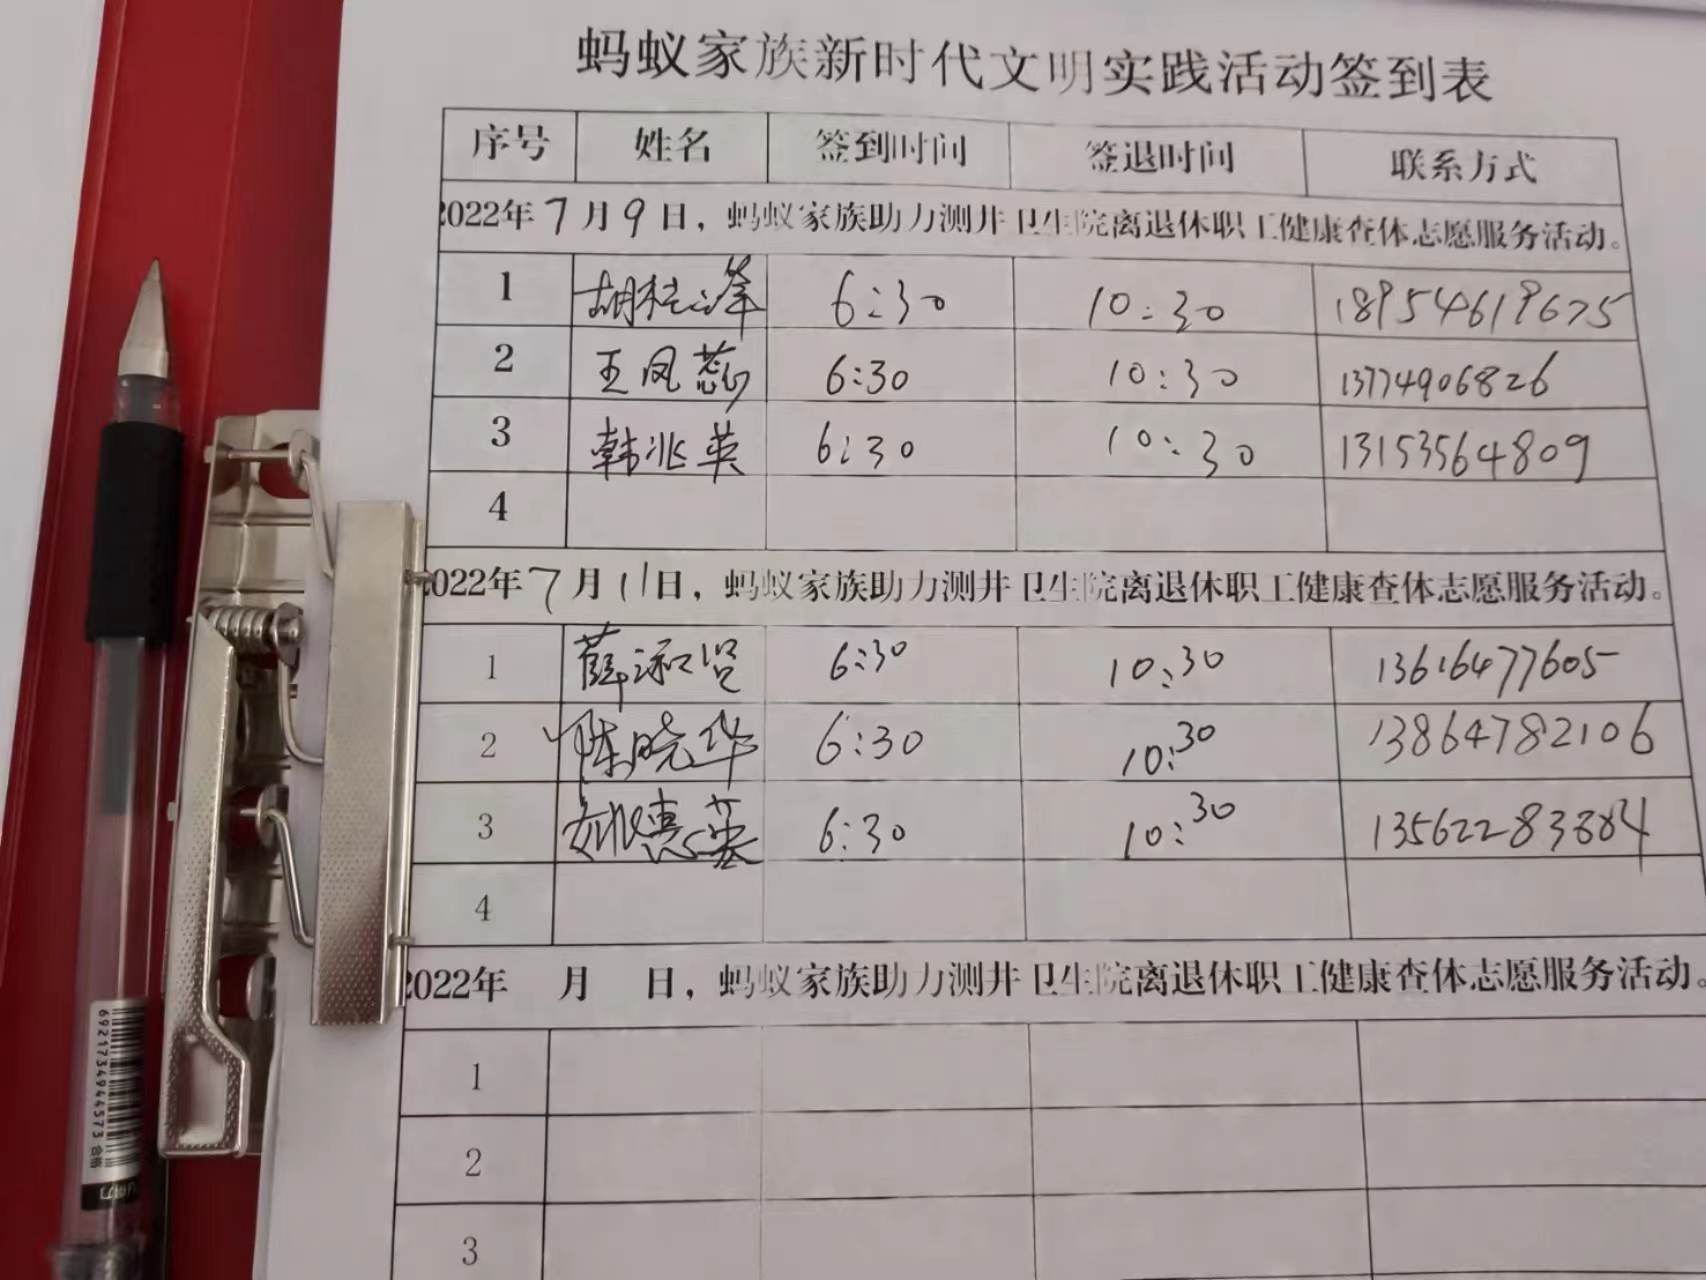 蚂蚁家族新时代文明实践活动签到表
序号 姓名 签到时间 签退时间 联系方式
2022年7月9日，蚂蚁家族助力测井卫生院离退休职工健康查体志愿服务活动。
1 胡桂峰 6:30 10:30 18954619675
2 王凤蕊 6:30 10:30 13774906826
3 韩兆英 6:30 10:30 13153564809
4
2022年7月11日，蚂蚁家族助力测井卫生院离退休职工健康查体志愿服务活动。
1 薛淑贤 6:30 10:30 13616477605
2 陈晓华 6:30 10:30 13864782106
3 姚惠英 6:30 10:30 13562283884
4
2022年 月 日，蚂蚁家族助力测井卫生院离退休职工健康查体志愿服务活动。
1
2
3
6921734944573 合格